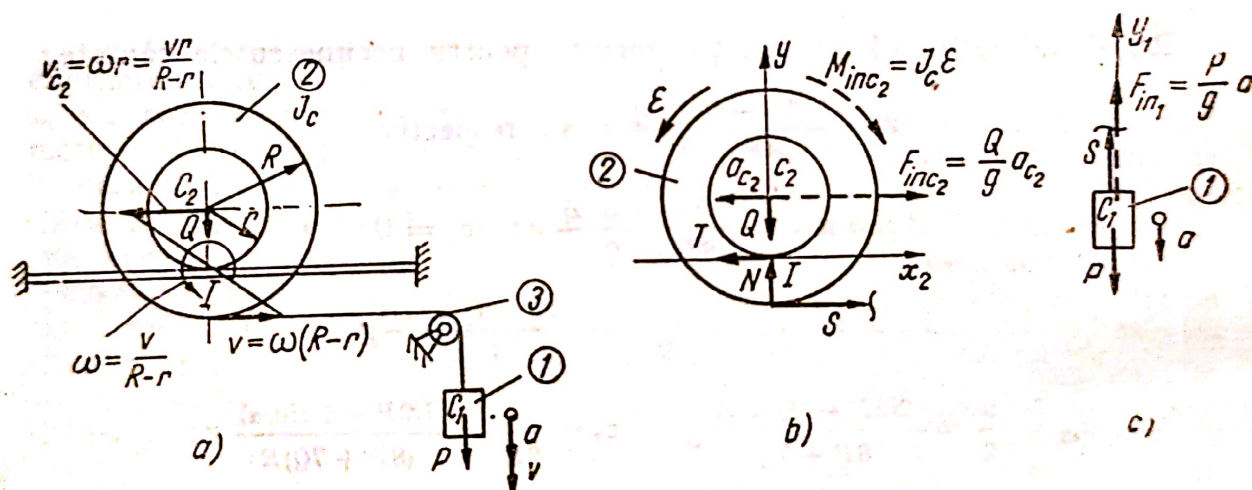 v_{c_2} = ωr = \frac{vr}{R-r}
②
J_c
R
C_2
r
Q
I
ω = \frac{v}{R-r}
v = ω(R-r)
③
①
C_1
P
a
v
a)
y
M_{inc_2} = J_c ε
ε
②
a_{c_2}
c_2
F_{inc_2} = \frac{Q}{g} a_{c_2}
Q
T
N
I
x_2
S
b)
y_1
F_{in_1} = \frac{P}{g} a
S
①
C_1
a
P
c)